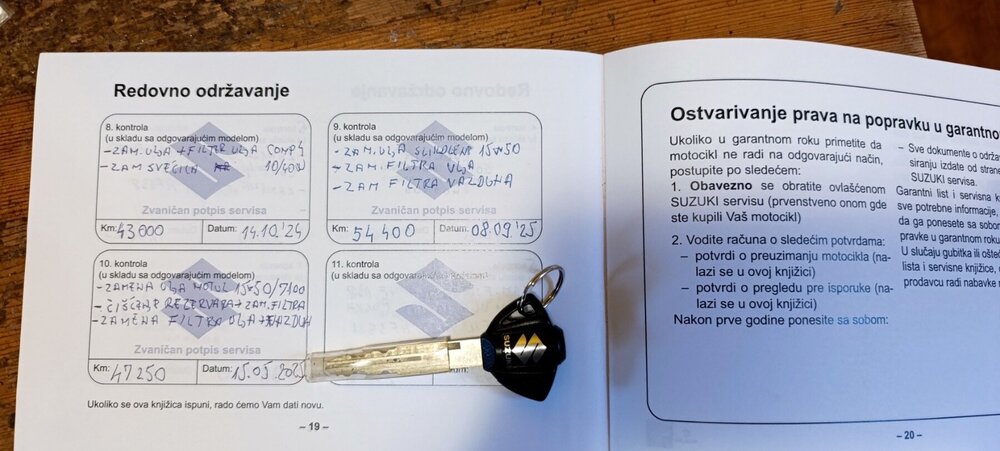 Redovno održavanje
8. kontrola
(u skladu sa odgovarajućim modelom)
- ZAM. ULJA + FILTER ULJA COMP4
- ZAM SVEĆICA 10/400
Zvaničan potpis servisa
Km: 43000 Datum: 14.10.'24
9. kontrola
(u skladu sa odgovarajućim modelom)
- ZAM. ULJA 15W50
- ZAM. FILTRA ULJA
- ZAM FILTRA VAZDUHA
Zvaničan potpis servisa
Km: 54400 Datum: 08.09.'25
10. kontrola
(u skladu sa odgovarajućim modelom)
- ZAMENA ULJA MOTUL 15W50/5100
- ČIŠĆENJE REZERVARA + ZAM. FILTRA
- ZAMENA FILTRA ULJA + VAZDUH
Zvaničan potpis servisa
Km: 47250 Datum: 15.05.2025
11. kontrola
(u skladu sa
SUZUKI
Ukoliko se ova knjižica ispuni, rado ćemo Vam dati novu.
– 19 –
Ostvarivanje prava na popravku u garantno
Ukoliko u garantnom roku primetite da
motocikl ne radi na odgovarajući način,
postupite po sledećem:
1. Obavezno se obratite ovlašćenom
SUZUKI servisu (prvenstveno onom gde
ste kupili Vaš motocikl)
2. Vodite računa o sledećim potvrdama:
– potvrdi o preuzimanju motocikla (na-
lazi se u ovoj knjižici)
– potvrdi o pregledu pre isporuke (na-
lazi se u ovoj knjižici)
Nakon prve godine ponesite sa sobom:
– Sve dokumente o održa
siranju izdate od strane
SUZUKI servisa.
Garantni list i servisna k
sve potrebne informacije,
da ga ponesete sa sobom
pravke u garantnom roku
U slučaju gubitka ili ošte
lista i servisne knjižice,
prodavcu radi nabavke n
– 20 –